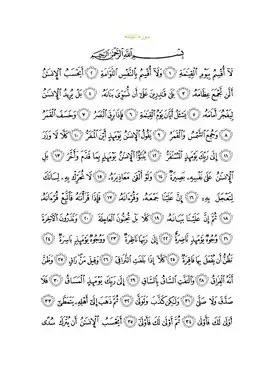 سورة القيامة
بِسْمِ اللَّهِ الرَّحْمَٰنِ الرَّحِيمِ
لَا أُقْسِمُ بِيَوْمِ الْقِيَامَةِ ١ وَلَا أُقْسِمُ بِالنَّفْسِ اللَّوَّامَةِ ٢ أَيَحْسَبُ الْإِنسَانُ
أَلَّن نَّجْمَعَ عِظَامَهُ ٣ بَلَىٰ قَادِرِينَ عَلَىٰ أَن نُّسَوِّيَ بَنَانَهُ ٤ بَلْ يُرِيدُ الْإِنسَانُ
لِيَفْجُرَ أَمَامَهُ ٥ يَسْأَلُ أَيَّانَ يَوْمُ الْقِيَامَةِ ٦ فَإِذَا بَرِقَ الْبَصَرُ ٧ وَخَسَفَ الْقَمَرُ
٨ وَجُمِعَ الشَّمْسُ وَالْقَمَرُ ٩ يَقُولُ الْإِنسَانُ يَوْمَئِذٍ أَيْنَ الْمَفَرُّ ١٠ كَلَّا لَا وَزَرَ
١١ إِلَىٰ رَبِّكَ يَوْمَئِذٍ الْمُسْتَقَرُّ ١٢ يُنَبَّأُ الْإِنسَانُ يَوْمَئِذٍ بِمَا قَدَّمَ وَأَخَّرَ ١٣ بَلِ
الْإِنسَانُ عَلَىٰ نَفْسِهِ بَصِيرَةٌ ١٤ وَلَوْ أَلْقَىٰ مَعَاذِيرَهُ ١٥ لَا تُحَرِّكْ بِهِ لِسَانَكَ
لِتَعْجَلَ بِهِ ١٦ إِنَّ عَلَيْنَا جَمْعَهُ وَقُرْآنَهُ ١٧ فَإِذَا قَرَأْنَاهُ فَاتَّبِعْ قُرْآنَهُ
١٨ ثُمَّ إِنَّ عَلَيْنَا بَيَانَهُ ١٩ كَلَّا بَلْ تُحِبُّونَ الْعَاجِلَةَ ٢٠ وَتَذَرُونَ الْآخِرَةَ
٢١ وُجُوهٌ يَوْمَئِذٍ نَّاضِرَةٌ ٢٢ إِلَىٰ رَبِّهَا نَاظِرَةٌ ٢٣ وَوُجُوهٌ يَوْمَئِذٍ بَاسِرَةٌ ٢٤
تَظُنُّ أَن يُفْعَلَ بِهَا فَاقِرَةٌ ٢٥ كَلَّا إِذَا بَلَغَتِ التَّرَاقِيَ ٢٦ وَقِيلَ مَنْ رَاقٍ ٢٧ وَظَنَّ
أَنَّهُ الْفِرَاقُ ٢٨ وَالْتَفَّتِ السَّاقُ بِالسَّاقِ ٢٩ إِلَىٰ رَبِّكَ يَوْمَئِذٍ الْمَسَاقُ ٣٠ فَلَا
صَدَّقَ وَلَا صَلَّىٰ ٣١ وَلَٰكِن كَذَّبَ وَتَوَلَّىٰ ٣٢ ثُمَّ ذَهَبَ إِلَىٰ أَهْلِهِ يَتَمَطَّىٰ ٣٣
أَوْلَىٰ لَكَ فَأَوْلَىٰ ٣٤ ثُمَّ أَوْلَىٰ لَكَ فَأَوْلَىٰ ٣٥ أَيَحْسَبُ الْإِنسَانُ أَن يُتْرَكَ سُدًى